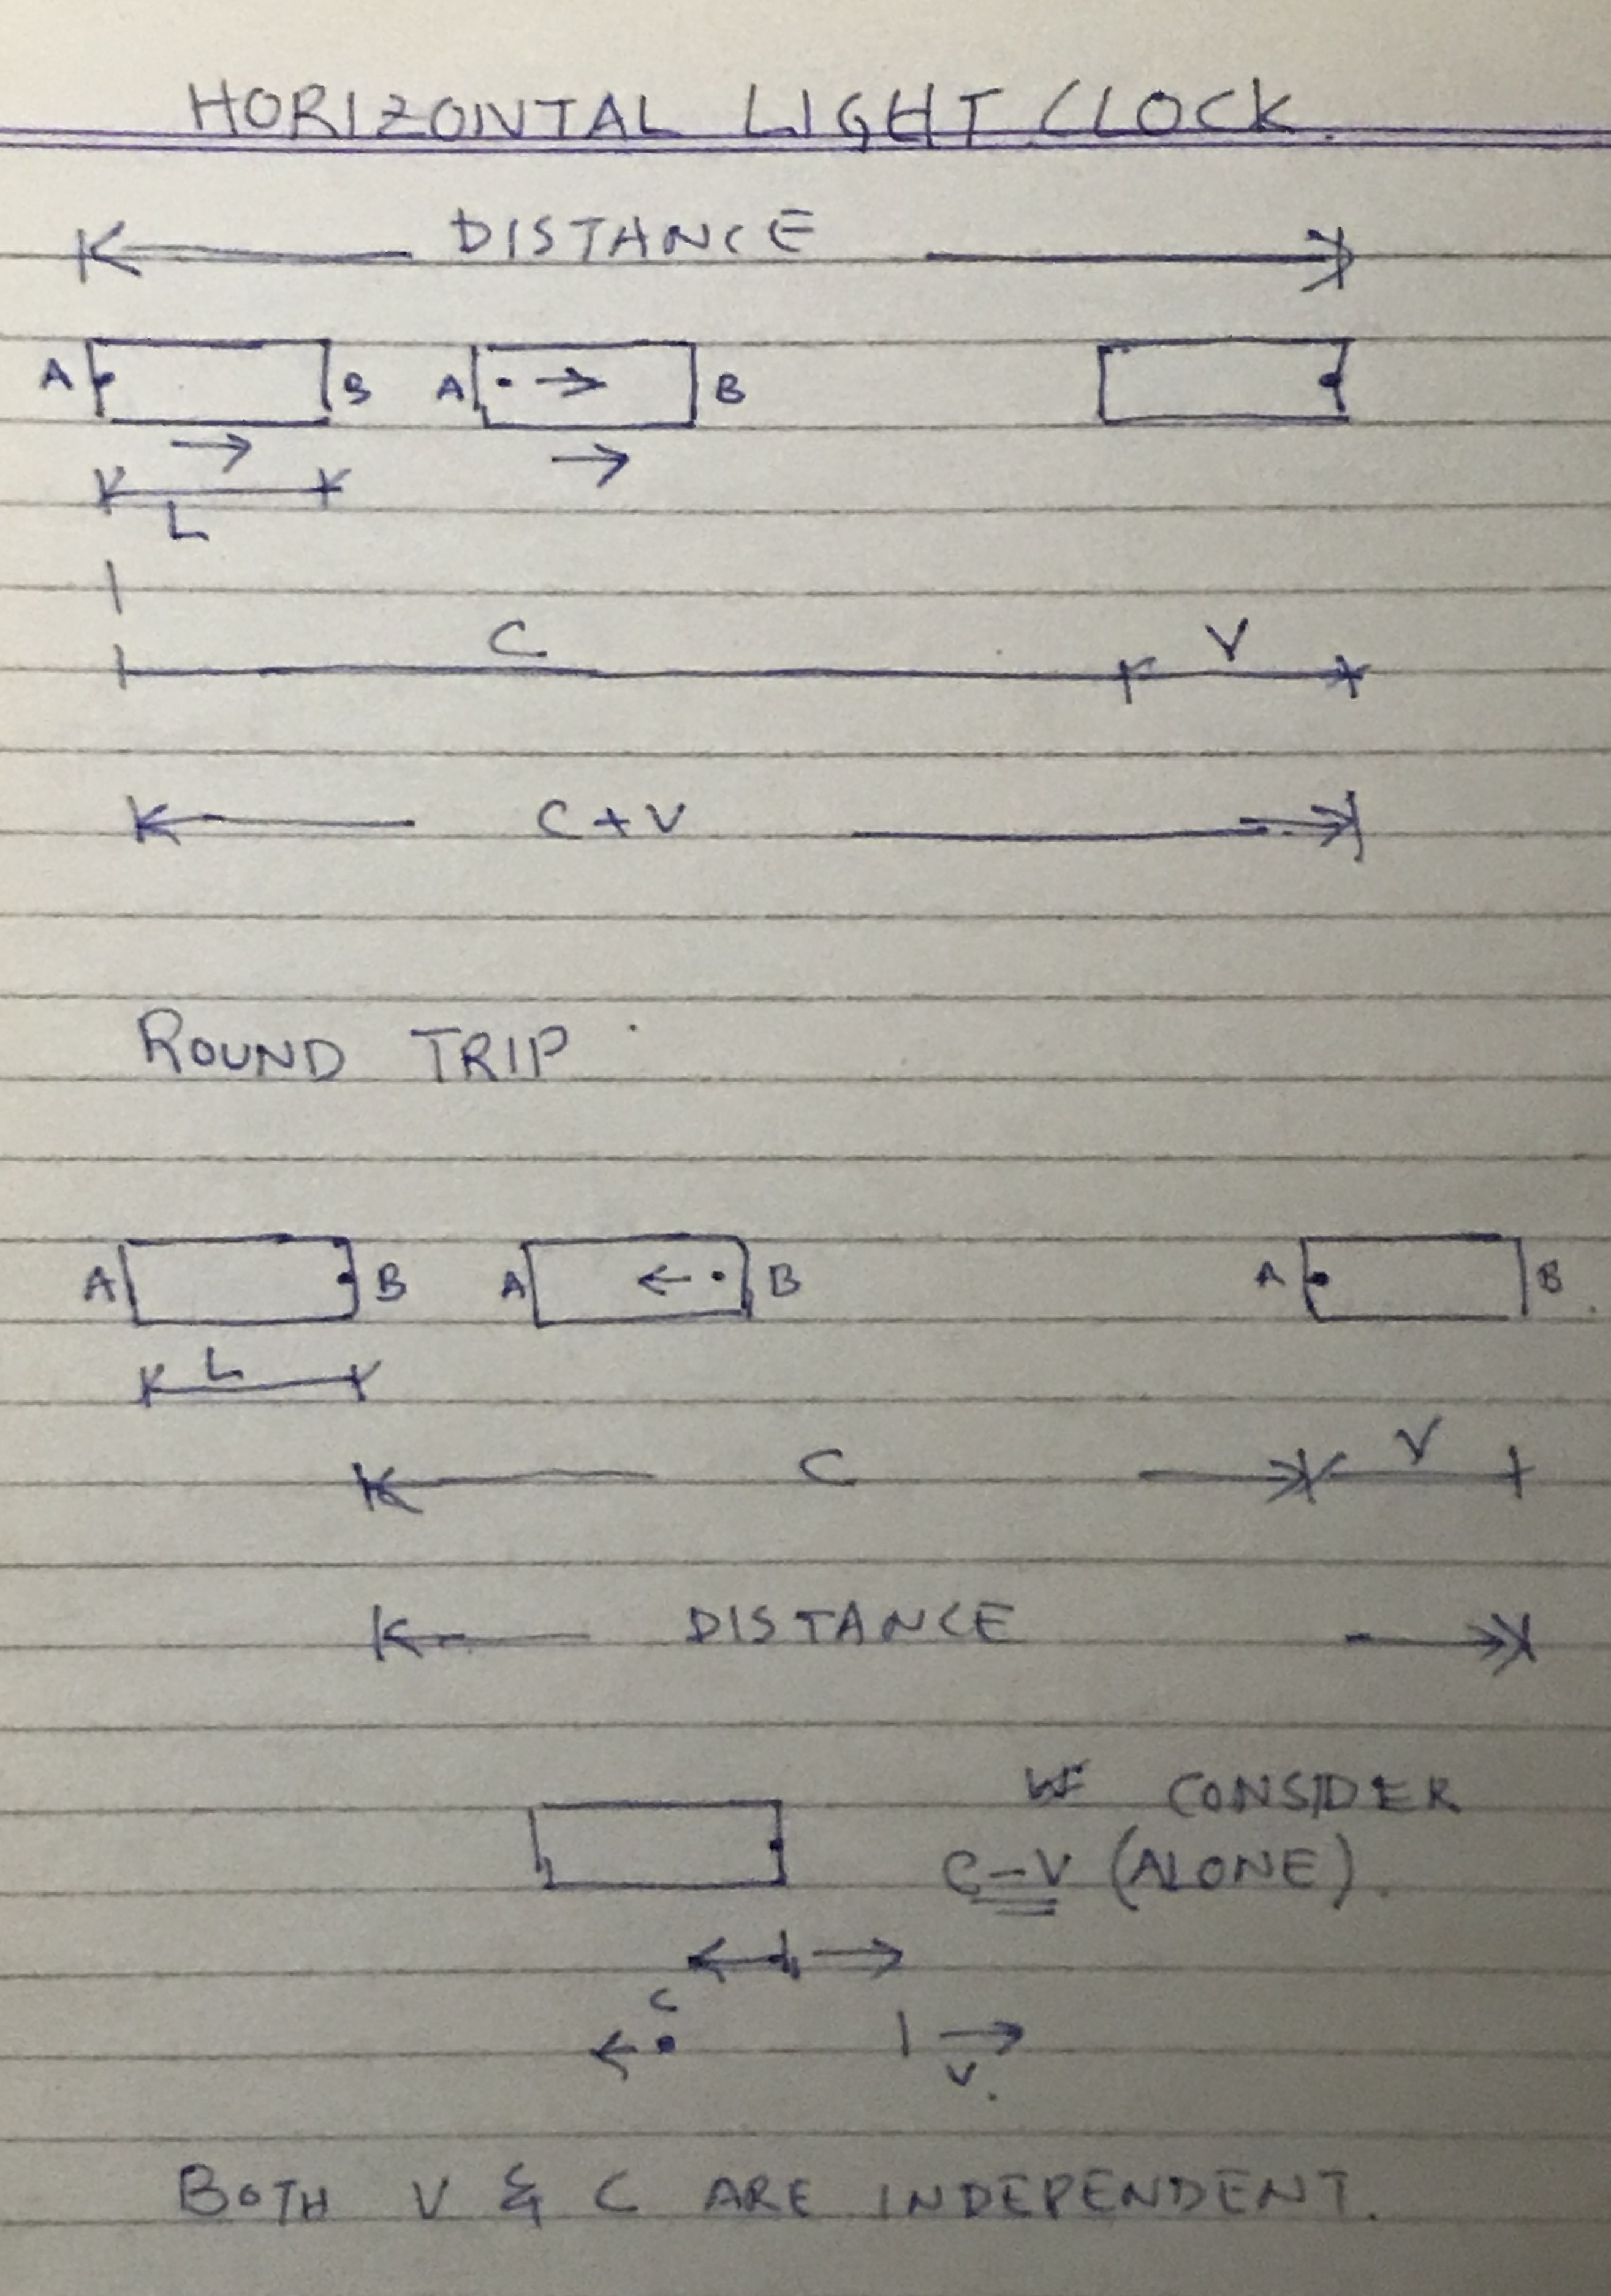 HORIZONTAL LIGHT CLOCK.
DISTANCE
A B A B
L
C V
C+V
ROUND TRIP
A B A B A B
L
C V
DISTANCE
CONSIDER
C-V (ALONE).
C
V.
BOTH V & C ARE INDEPENDENT.